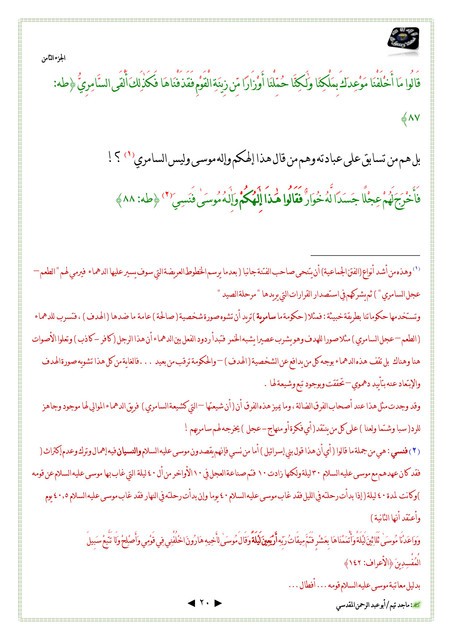 الجزء الثامن
قَالُوا مَا أَخْلَفْنَا مَوْعِدَكَ بِمَلْكِنَا وَلَٰكِنَّا حُمِّلْنَا أَوْزَارًا مِّن زِينَةِ الْقَوْمِ فَقَذَفْنَاهَا فَكَذَٰلِكَ أَلْقَى السَّامِرِيُّ ﴿طه:
٨٧﴾
بل هم من تسابق على عبادته وهم من قال هذا إلهكم وإله موسى وليس السامري (١) ؟ !
فَأَخْرَجَ لَهُمْ عِجْلًا جَسَدًا لَّهُ خُوَارٌ فَقَالُوا هَٰذَا إِلَٰهُكُمْ وَإِلَٰهُ مُوسَىٰ فَنَسِيَ (٢) ﴿طه: ٨٨﴾
(١) وهذه من أشد أنواع (الفتن الجماعية) أن يتنحى صاحب الفتنة جانبا (بعدما يرسم الخطوط العريضة التي سوف يسير عليها الدهماء فيرمي لهم "الطعم –
عجل السامري") ثم يشركهم في استصدار القرارات التي يريدها "مرحلة الصيد"
وتستخدمها حكوماتنا بطريقة خبيثة : فمثلا (حكومة ما سامرية) تريد أن تشوه صورة شخصية (صالحة) عامة ما ضدها (الهدف) ، فتسرب للدهماء
(الطعم – عجل السامري) مثلا صور للهدف وهو يشرب عصيرا يشبه الخمر فتبدأ ردود الفعل بين الدهماء أن هذا الرجل (كافر – كاذب) وتعلوا الأصوات
هنا وهناك بل تقف هذه الدهماء بوجه كل من يدافع عن الشخصية (الهدف) – والحكومة ترقب من بعيد ... فالغاية من كل هذا تشويه صورة الهدف
والإبتعاد عنه بتأييد دهموي – تحققت وبوجود تبع وشيعة لها .
وقد وجدت مثل هذا عند أصحاب الفرق الضالة ، وما يميز هذه الفرق أن (أن شيعتها – التي كشيعة السامري) فريق الدهماء الموالي لها موجود وجاهز
للرد (سبا وشتما ولعنا) على كل من ينتقد (أي فكرة أو منهاج – عجل) يخرجه لهم سامريهم !
(٢) فنسي : هي من جملة ما قالوا (أي أن هذا قول بني إسرائيل) أما من نسي فإنهم يقصدون موسى عليه السلام والنسيان فيه إهمال وترك وعدم إكتراث (
فقد كان عهدهم مع موسى عليه السلام ٣٠ ليلة ولكنها زادت ١٠ فتم صناعة العجل في ١٠ الأواخر من آل ٤٠ ليلة التي غاب بها موسى عليه السلام عن قومه
) وكانت لمدة ٤٠ ليلة (إذا بدأت رحلته في الليل فقد غاب موسى عليه السلام ٤٠ يوما وإن بدأت رحلته في النهار فقد غاب موسى عليه السلام ٤٠.٥ يوم
وأعتقد أنها الثانية)
وَوَاعَدْنَا مُوسَىٰ ثَلَاثِينَ لَيْلَةً وَأَتْمَمْنَاهَا بِعَشْرٍ فَتَمَّ مِيقَاتُ رَبِّهِ أَرْبَعِينَ لَيْلَةً وَقَالَ مُوسَىٰ لِأَخِيهِ هَارُونَ اخْلُفْنِي فِي قَوْمِي وَأَصْلِحْ وَلَا تَتَّبِعْ سَبِيلَ
الْمُفْسِدِينَ ﴿الأعراف: ١٤٢﴾
بدليل معاتبة موسى عليه السلام قومه ... أفطال ...
ماجد تيم / أبو عبد الرحمن المقدسي
◄ ٢٠ ►